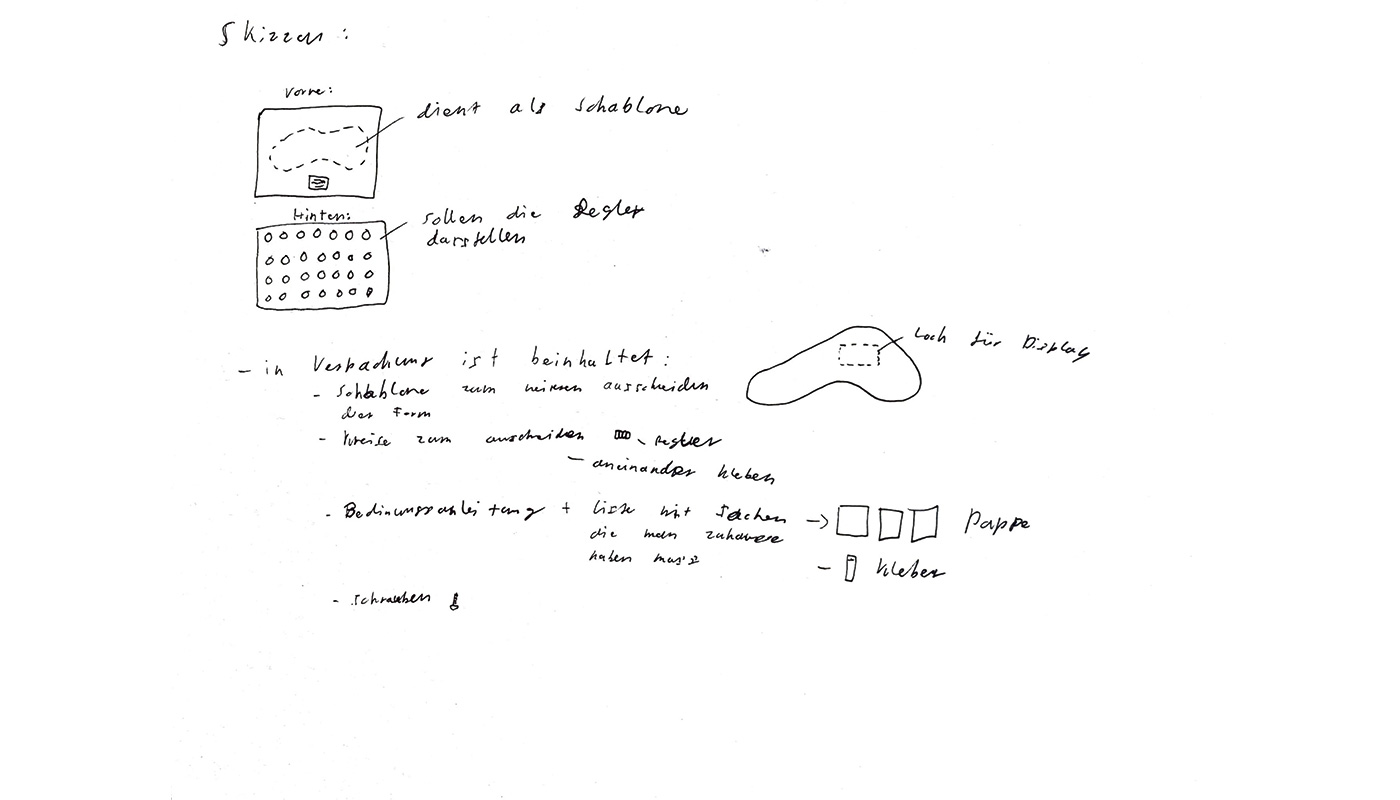 Skizzen:
Vorne:
dient als Schablone
Hinten:
sollen die Regler
darstellen
Loch für Display
- in Verpackung ist beinhaltet:
- Schablone zum ausscheiden
der Form
- Kreise zum ausscheiden - Regler
- aneinander kleben
- Bedinungsanleitung + Liste mit Sachen -> Pappe
die man zuhause
haben muss
- Kleber
- Schrauben